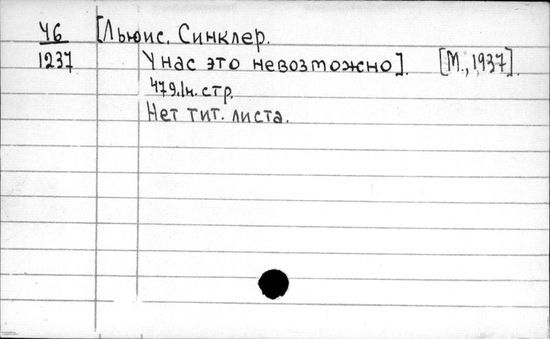 Ч6 [Льюис, Синклер.
1237 У нас это невозможно]. [М., 1937].
479,1н. стр.
Нет тит. листа.